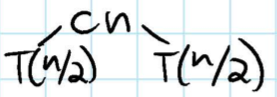 Cn
T(n/2) T(n/2)